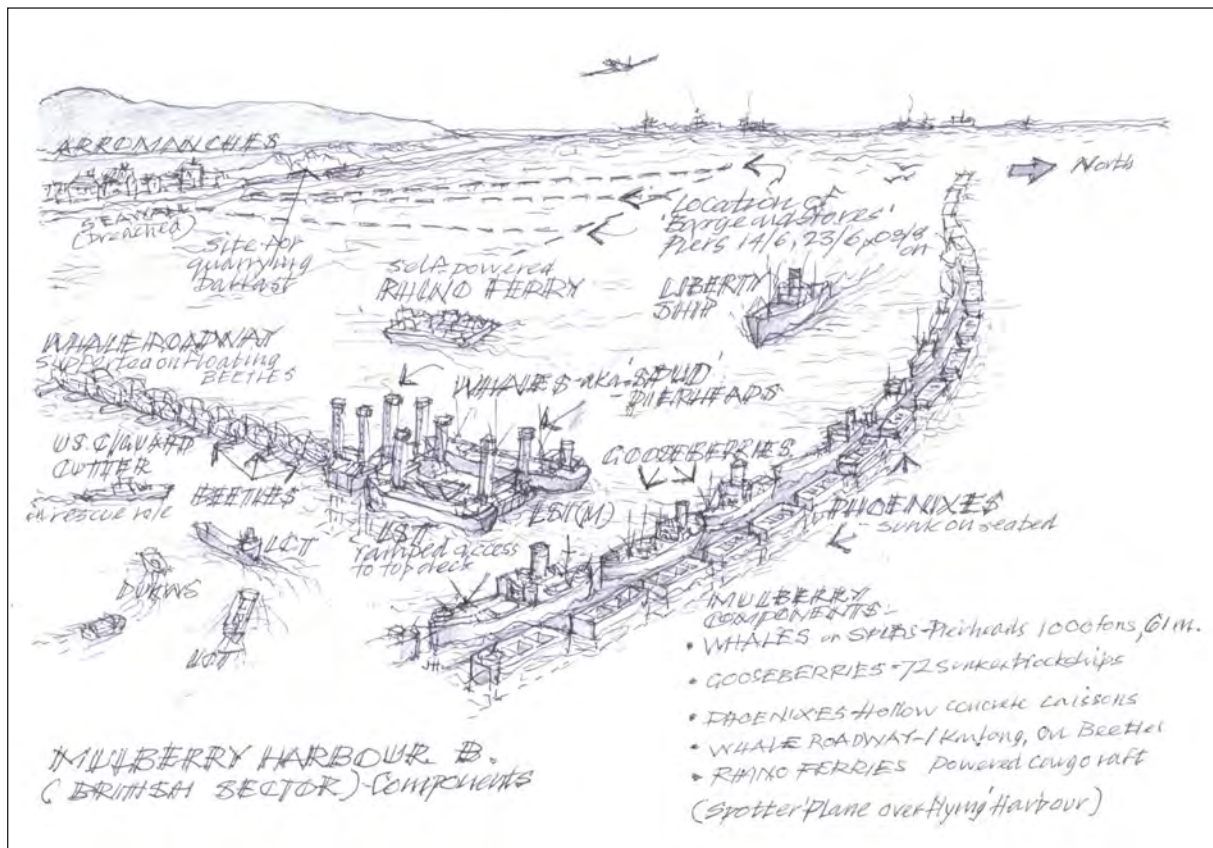 ARROMANCHES
North
SEAWALL
(breached)
Site for
quarrying
Ballast
Location of
'Barge and stores'
Piers 14/6, 23/6,
on
self-powered
RHINO FERRY
LIBERTY
SHIP
WHALE ROADWAY
supported on floating
BEETLES
WHALES - aka 'SPUD'
- PIERHEADS
U.S. C/GUARD
CUTTER
in rescue role
BEETLES
GOOSEBERRIES
LCT
LST
ramped access
to top deck
LSI(M)
PHOENIXES
- sunk on seabed
DUKWS
LCT
MULBERRY
COMPONENTS -
• WHALES or SPUDS - Pierheads 1000 tons, 61m.
• GOOSEBERRIES - 72 Sunken blockships
• PHOENIXES - Hollow concrete caissons
• WHALE ROADWAY - 1 km long, on Beetles
• RHINO FERRIES powered cargo raft
(Spotter Plane overflying Harbour)
MULBERRY HARBOUR B.
(BRITISH SECTOR) - Components